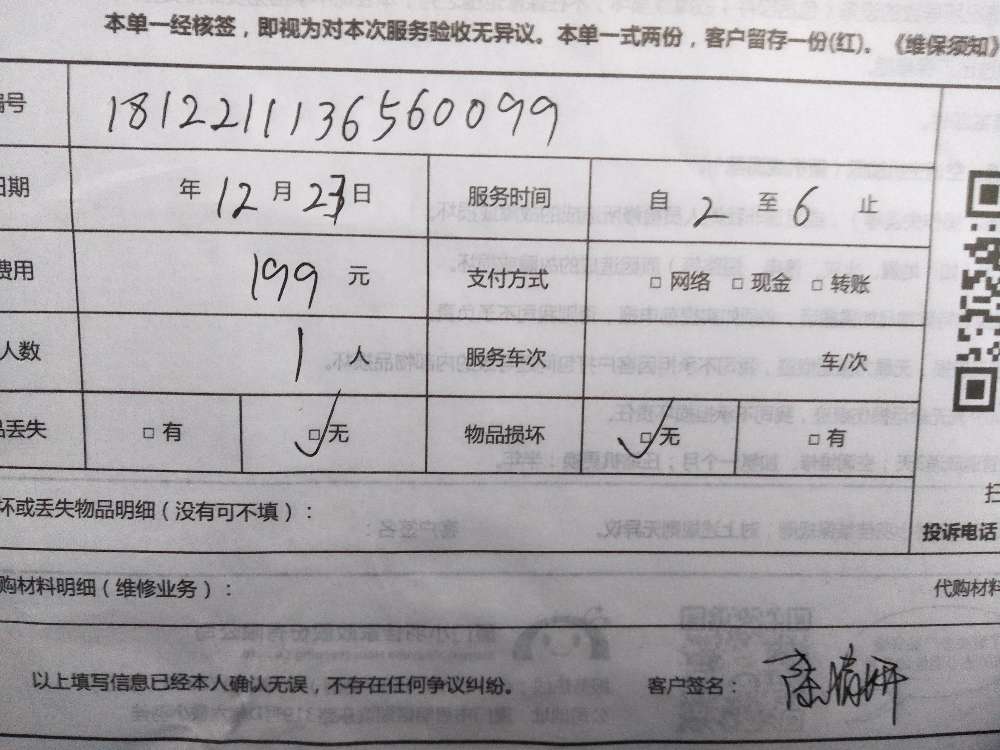 本单一经核签，即视为对本次服务验收无异议。本单一式两份，客户留存一份(红)。《维保须知》
编号 1812211136560099
日期 年 12 月 23 日 服务时间 自 2 至 6 止
费用 199 元 支付方式 □ 网络 □ 现金 □ 转账
人数 1 人 服务车次 车/次
品丢失 □ 有 □ 无 物品损坏 □ 无 □ 有
坏或丢失物品明细（没有可不填）：
扫
投诉电话
购材料明细（维修业务）： 代购材料
以上填写信息已经本人确认无误，不存在任何争议纠纷。 客户签名：